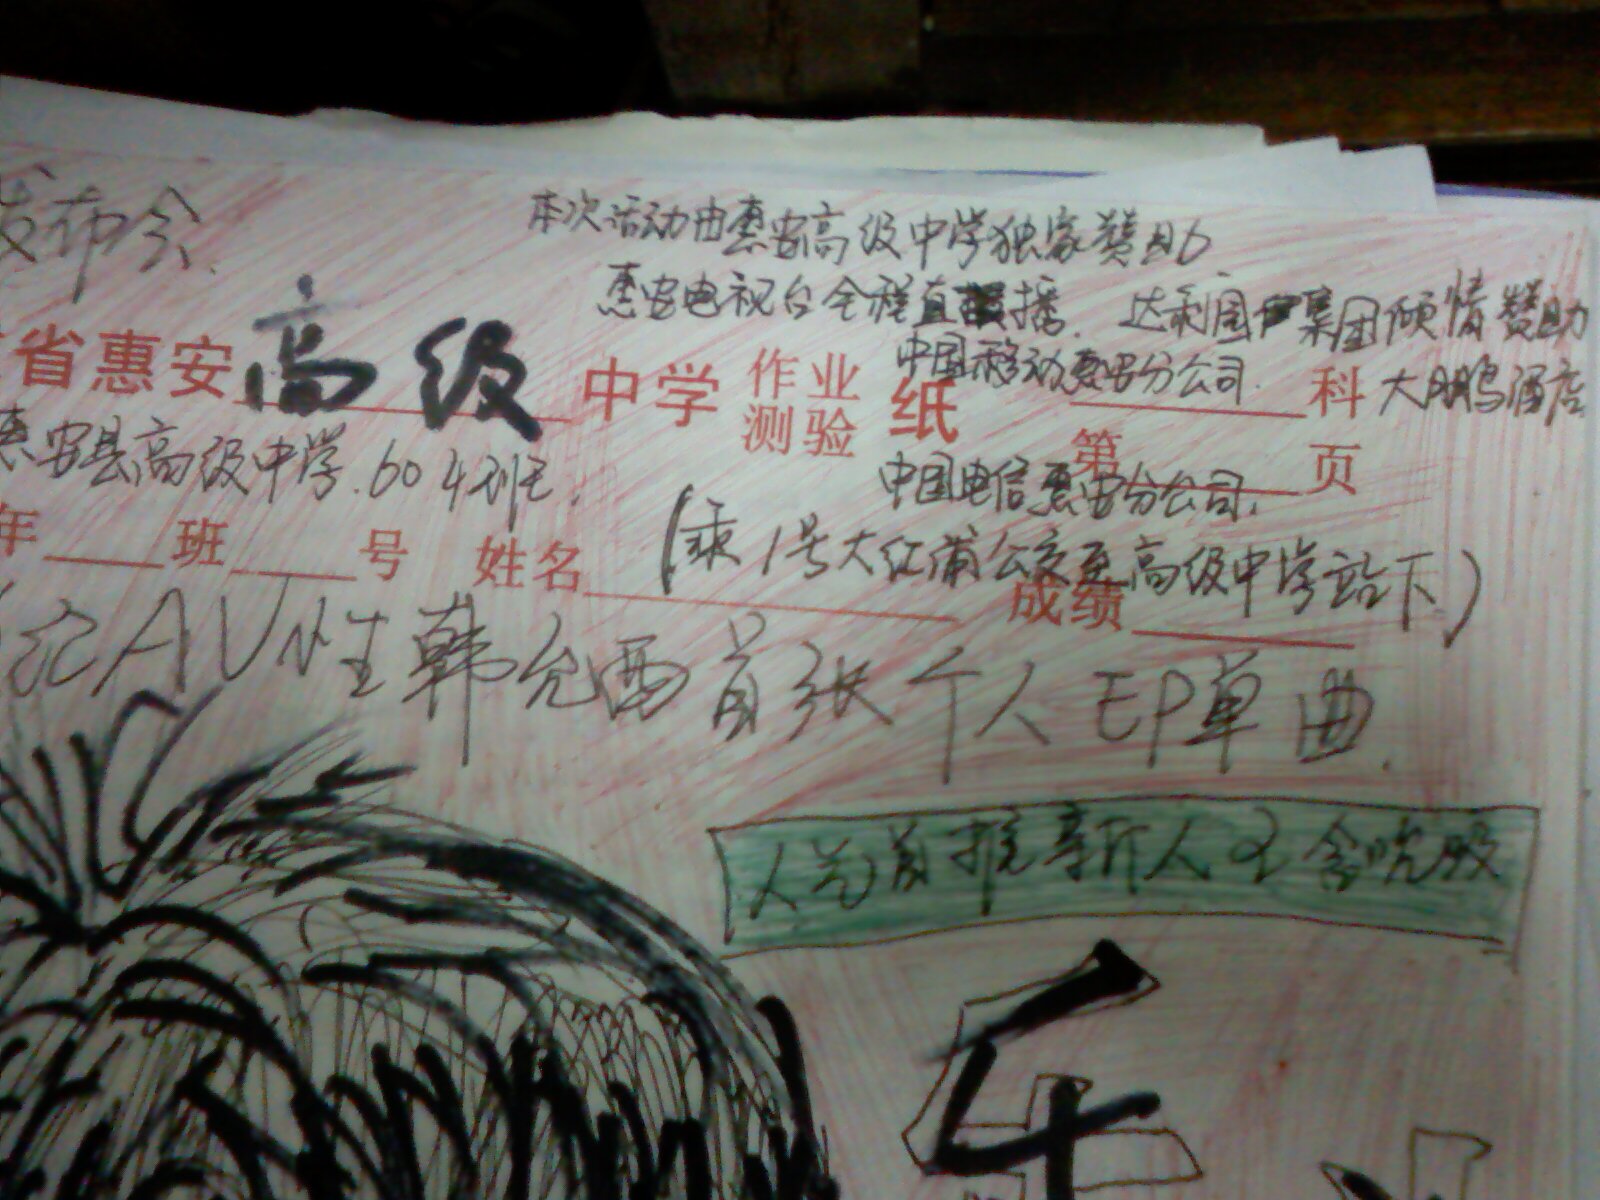 发布会.
本次活动由惠安高级中学独家赞助
惠安电视台全程直播. 达利园集团倾情赞助
省惠安高级中学 作业 测验 纸 科
中国移动惠安分公司. 大鹏酒店
惠安县高级中学.604班.
第 页
中国电信惠安分公司.
年 班 号 姓名 成绩
(乘1号大红蒲公交至高级中学站下)
AV性韩允西首张个人EP单曲.
首推新人王